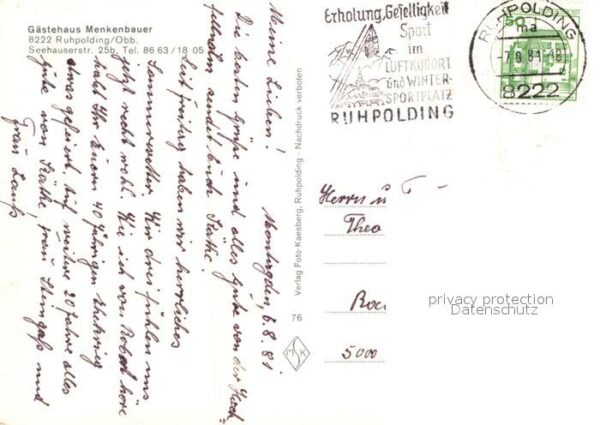 Gästehaus Menkenbauer
8222 Ruhpolding/Obb.
Seehauserstr. 25b, Tel. 86 63/18 05
Montag den, 6.8.81
Meine Lieben!
Die besten Grüße und alles Gute von der
sendet Euch Käthe.
Seit Freitag haben wir herrliches
Sommerwetter. Wir drei fühlen uns
jetzt recht wohl. Wie ich von Robert höre
habt Ihr Euern 40 jährigen
gefeiert. Auf weitere 20 Jahre alles
Gute von Käthe, Frau und
Frau
Verlag Foto Kaesberg, Ruhpolding - Nachdruck verboten
76
Erholung, Geselligkeit
Sport
im
LUFTKURORT
und WINTER-
SPORTPLATZ
RUHPOLDING
RUHPOLDING
ma
8222
50
Herrn u
Theo
5000
privacy protection
Datenschutz